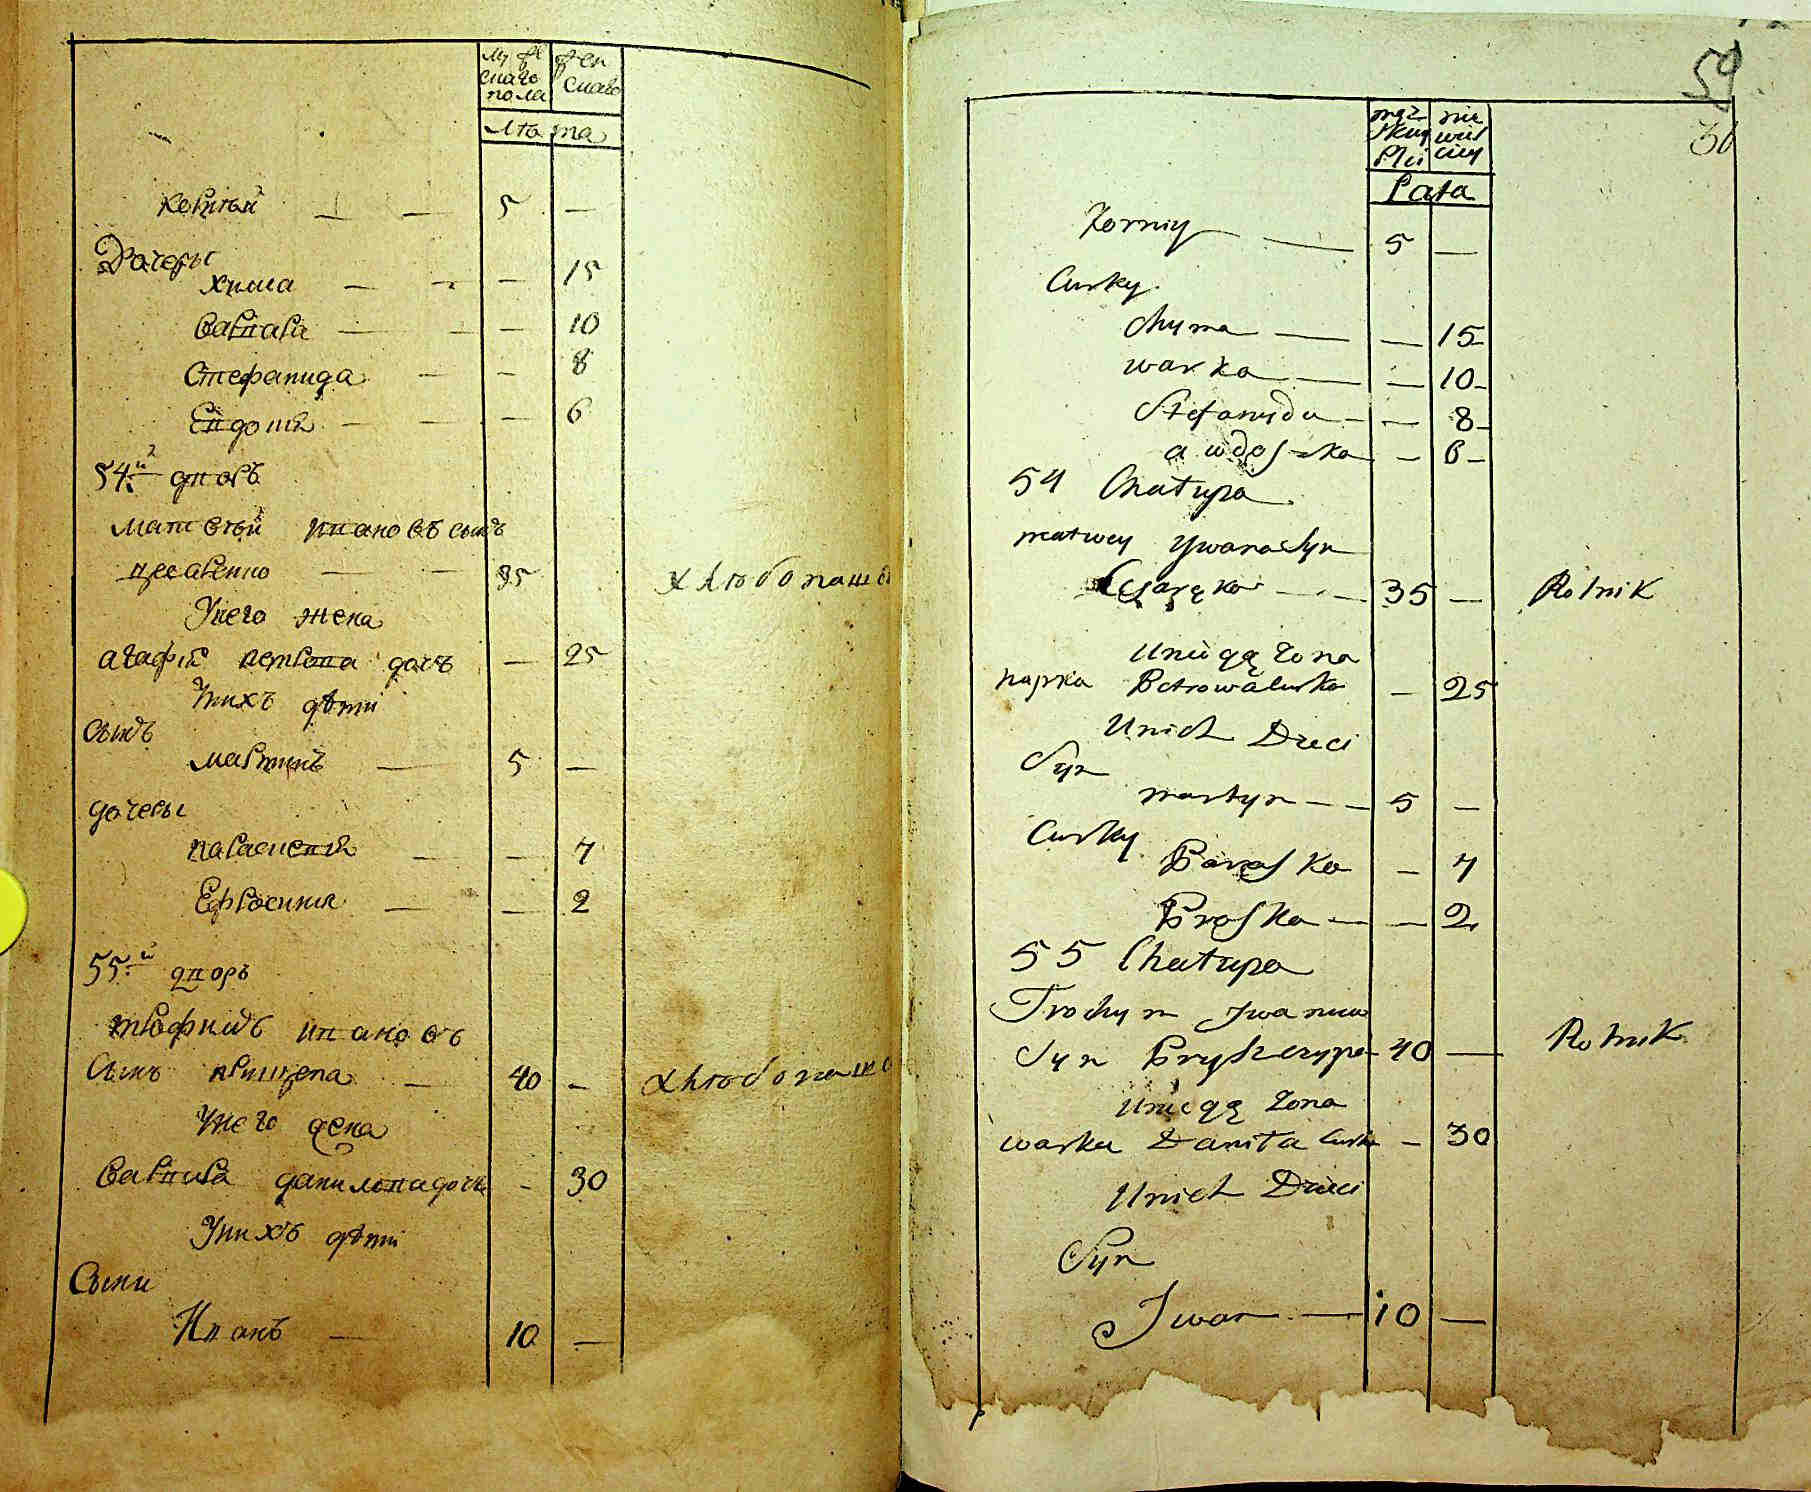 мужескаго пола
женскаго
Лѣта
Корнѣй — — 5 —
Дочеры
Химка — — — 15
Варвара — — — 10
Стефанида — — 8
Евдокия — — — 6
54й дворъ
Матвѣй Ивановъ сынъ
— — 35
хлѣбопаше
У него жена
Агафия Петрова дочь — 25
У них дѣти
Сынъ
Мартинъ — 5 —
дочеры
Параскевия — — 7
Ефросиния — — 2
55й дворъ
Трофимъ Ивановъ
Сынъ Прищепа — 40 —
хлѣбопаше
У него жена
Варвара Данилова дочь — 30
У нихъ дѣти
Сыни
Иванъ — 10 —
59
męż skiey Płci
nie wiesciey
Lata
Korniy — 5 —
Curky
Chyma — — 15
warka — — 10
Stefanyda — — 8
awdoszka — — 6
54 Chatupa
matwey ywana Syn
— — 35 —
Rolnik
Uniegą żona
Petrowa Curka — 25
Unich Dzieci
Syn
martyn — — 5 —
Curky
Paraska — 7
Praska — — 2
55 Chatupa
Trochym Jwanuw
Syn Pryszczypa 40 —
Rolnik
Uniegą żona
warka Daniła Curka — 30
Unich Dzieci
Syn
Jwan — 10 —